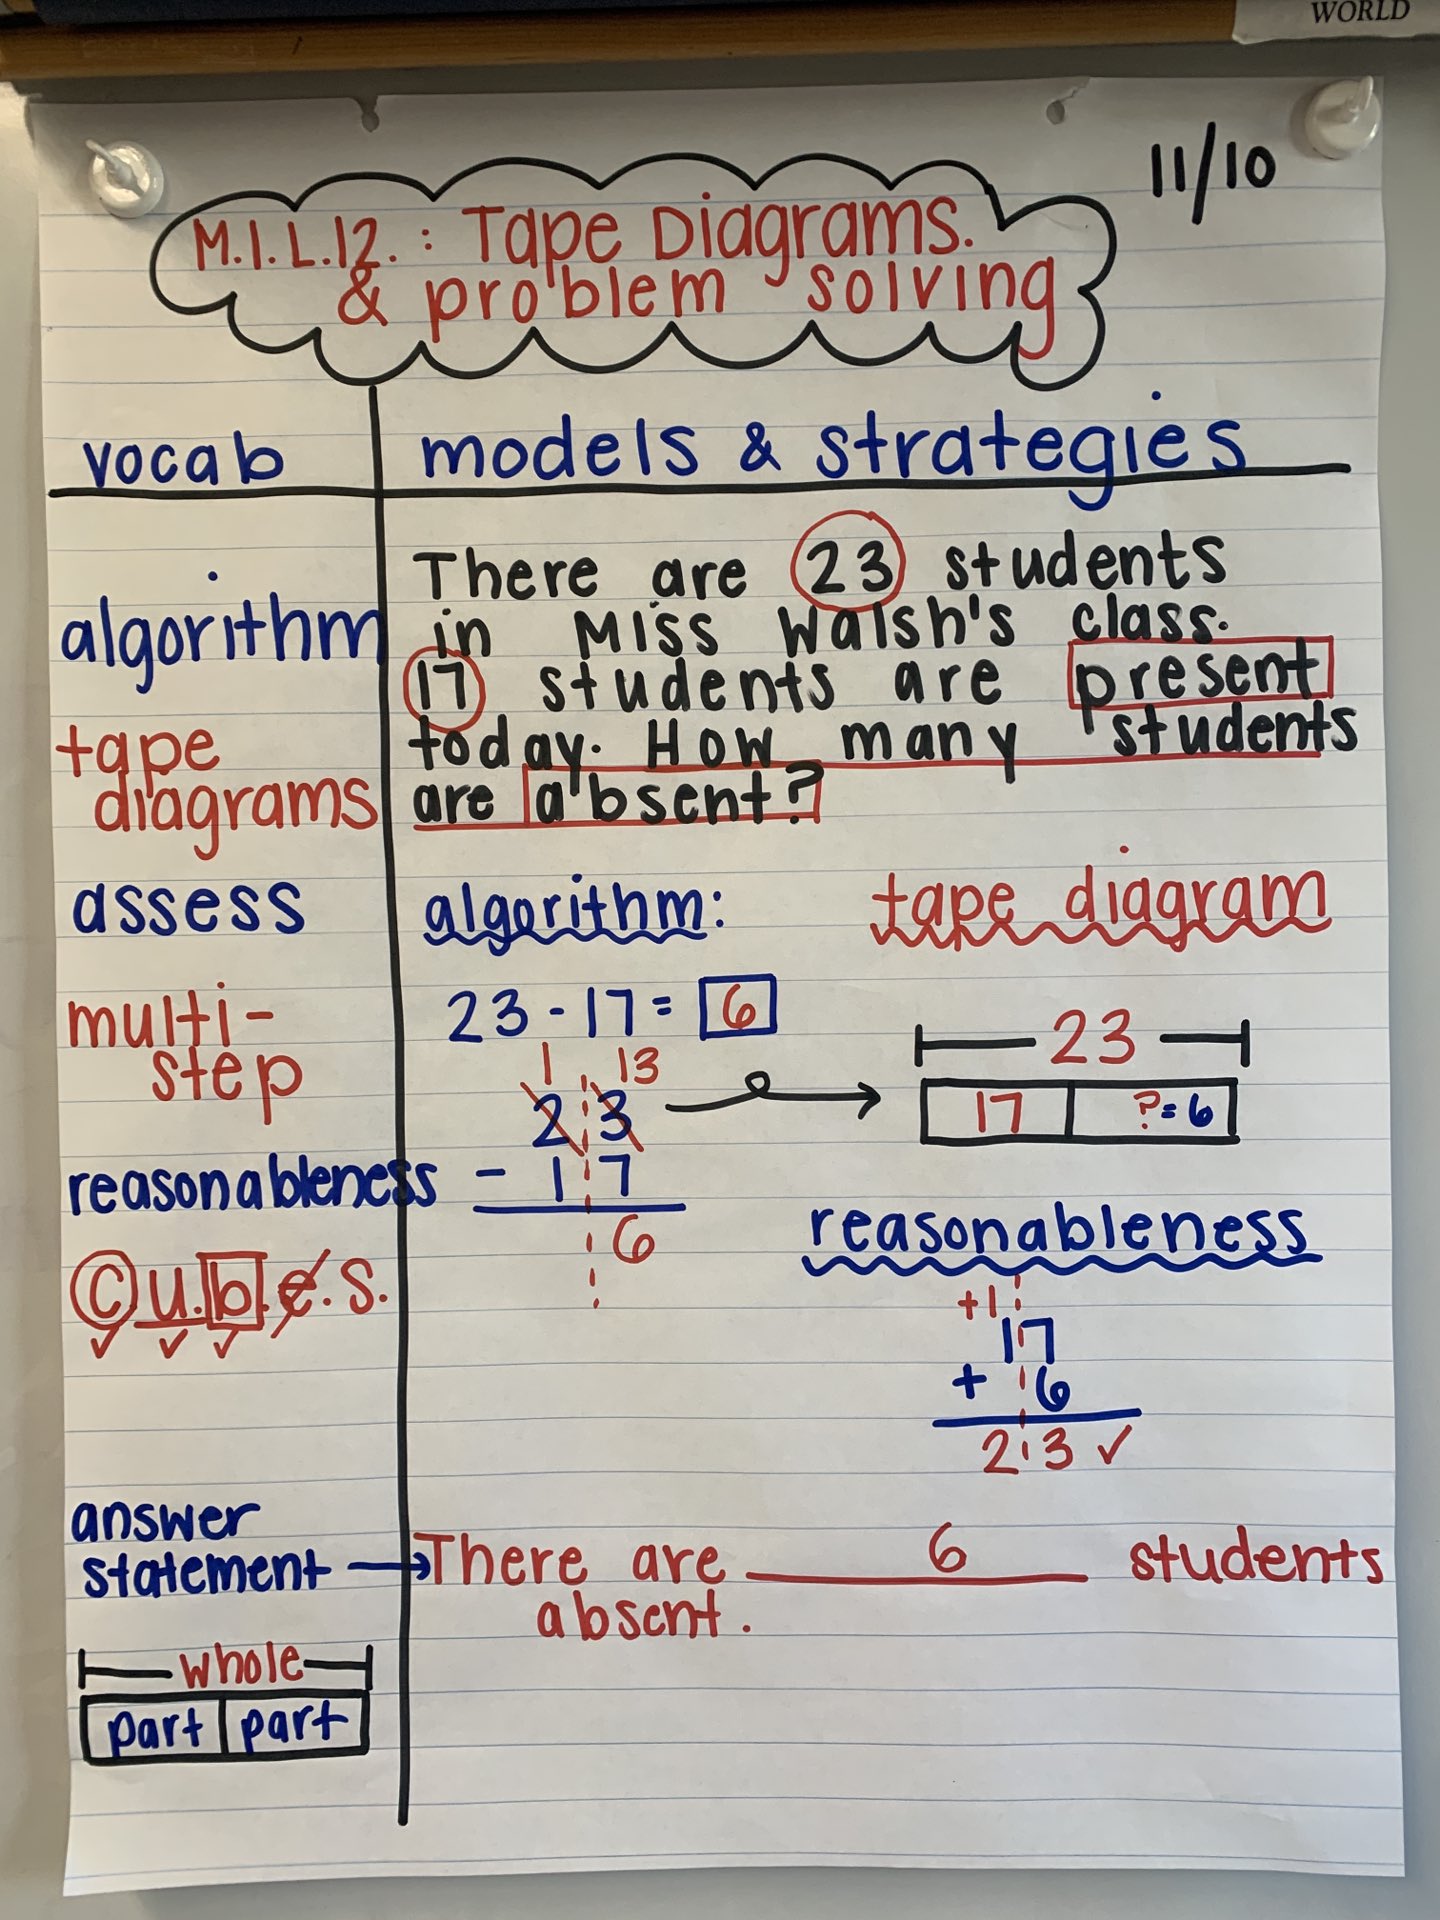 WORLD
11/10
M.1.L.12. : Tape Diagrams.
& problem solving
vocab
algorithm
tape
diagrams
assess
multi-
step
reasonableness
C u. b. e. s.
answer
statement →
whole
part part
models & strategies
There are 23 students
in Miss Walsh's class.
17 students are present
today. How many students
are absent?
algorithm:
23 - 17 = 6
1 13
2 3
- 1 7
6
tape diagram
23
17 ? = 6
reasonableness
+1
17
+ 6
23 ✓
There are 6 students
absent.